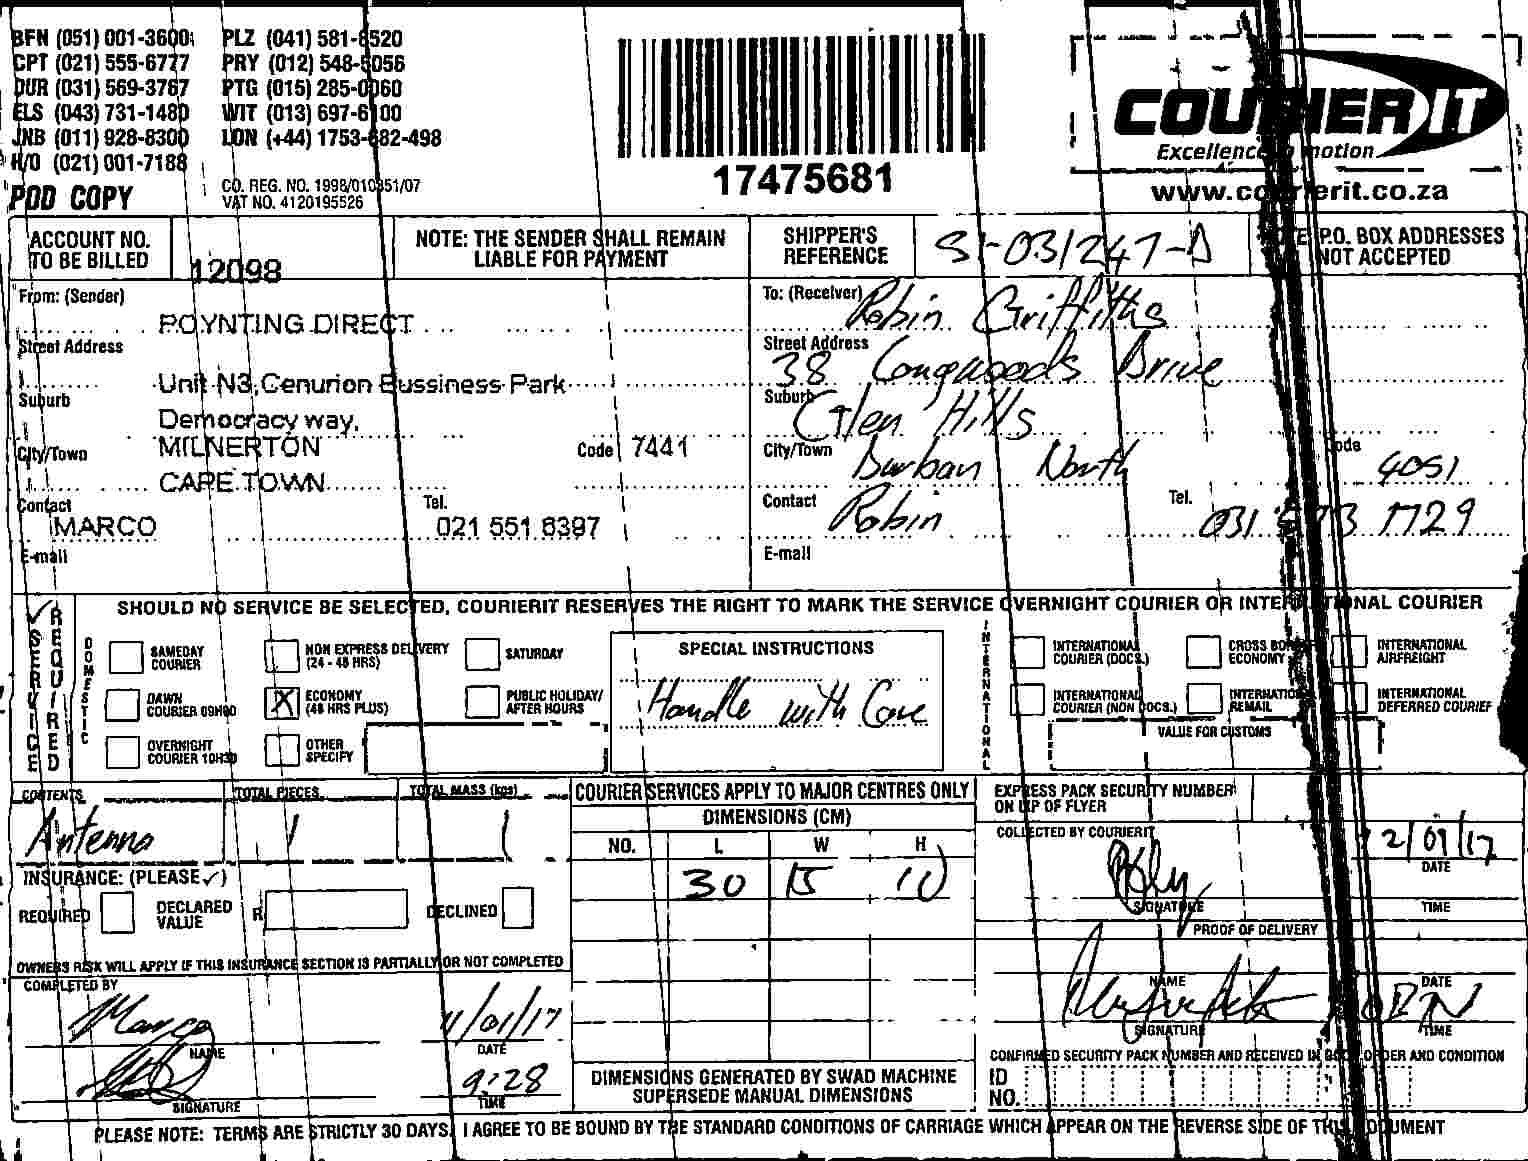 BFN (051) 001-3600 PLZ (041) 581-8520
CPT (021) 555-6777 PRY (012) 548-5056
DUR (031) 569-3767 PTG (015) 285-0060
ELS (043) 731-1480 WIT (013) 697-6100
JNB (011) 928-8300 LON (+44) 1753-682-498
H/O (021) 001-7188
POD COPY
CO. REG. NO. 1998/010351/07
VAT NO. 4120195526
17475681
COURIER IT
Excellence in motion
www.courierit.co.za
ACCOUNT NO. TO BE BILLED
12098
NOTE: THE SENDER SHALL REMAIN LIABLE FOR PAYMENT
SHIPPER'S REFERENCE
SI-031247-D
P.O. BOX ADDRESSES NOT ACCEPTED
From: (Sender)
POYNTING DIRECT
Street Address
Unit N3, Cenurion Bussiness Park
Suburb
Democracy way,
City/Town
MILNERTON
Code 7441
CAPE TOWN
Contact
MARCO
Tel.
021 551 6397
E-mail
To: (Receiver) Robin Griffiths
Street Address
38 Longwoods Drive
Suburb
Glen Hills
City/Town
Durban North
Code
4051
Contact
Robin
Tel.
031 573 1729
E-mail
SERVICE REQUIRED
SHOULD NO SERVICE BE SELECTED, COURIERIT RESERVES THE RIGHT TO MARK THE SERVICE OVERNIGHT COURIER OR INTERNATIONAL COURIER
DOMESTIC
SAMEDAY COURIER
NON EXPRESS DELIVERY (24 - 48 HRS)
SATURDAY
DAWN COURIER 09H00
X
ECONOMY (48 HRS PLUS)
PUBLIC HOLIDAY/ AFTER HOURS
OVERNIGHT COURIER 10H30
OTHER SPECIFY
SPECIAL INSTRUCTIONS
Handle with Care
INTERNATIONAL
INTERNATIONAL COURIER (DOCS.)
CROSS BORDER ECONOMY
INTERNATIONAL AIRFREIGHT
INTERNATIONAL COURIER (NON DOCS.)
INTERNATIONAL REMAIL
INTERNATIONAL DEFERRED COURIER
VALUE FOR CUSTOMS
CONTENTS
Antenna
TOTAL PIECES
1
TOTAL MASS (kgs)
1
INSURANCE: (PLEASE ✓)
REQUIRED
DECLARED VALUE
R
DECLINED
OWNERS RISK WILL APPLY IF THIS INSURANCE SECTION IS PARTIALLY OR NOT COMPLETED
COMPLETED BY
Marco
NAME
11/01/17
DATE
SIGNATURE
9:28
TIME
COURIER SERVICES APPLY TO MAJOR CENTRES ONLY
DIMENSIONS (CM)
NO. L W H
30 15 10
DIMENSIONS GENERATED BY SWAD MACHINE SUPERSEDE MANUAL DIMENSIONS
EXPRESS PACK SECURITY NUMBER ON LIP OF FLYER
COLLECTED BY COURIERIT
12/01/17
DATE
SIGNATURE
TIME
PROOF OF DELIVERY
NAME
DATE
SIGNATURE
TIME
CONFIRMED SECURITY PACK NUMBER AND RECEIVED IN GOOD ORDER AND CONDITION
ID NO.
PLEASE NOTE: TERMS ARE STRICTLY 30 DAYS. I AGREE TO BE BOUND BY THE STANDARD CONDITIONS OF CARRIAGE WHICH APPEAR ON THE REVERSE SIDE OF THIS DOCUMENT